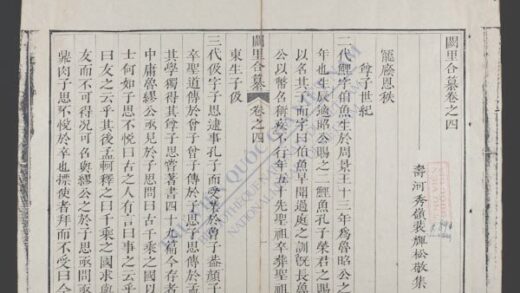 闕里合纂卷之四
壽河秀嶺裴輝松敬集
寵庥恩秩
子世紀
二代鯉字伯魚生於周景王十三年爲魯昭公之
年也生辰適昭公賜之二鯉魚孔子榮君之賜
以名其子而字曰伯魚早聞過庭之訓既長魚
公以幣召稱疾不行年五十先聖祖卒葬聖祖
闕里合纂 卷之四
東生子伋
三代伋字子思逮事孔子而受業於曾子顏子
卒聖道傳於曾子曾子傳於子思子思傳於孟
其學獨得其子思嘗著書四十九篇今存者
中庸魯繆公亟見於子思問曰古千乘之國以
士何如子思不悅曰古之人有言曰事之云乎
曰友之云乎其後孟軻釋之曰千乘之國求
友而不可得況可召與繆公之於子思亟問亟
餽肉子思不悅於卒也摽使者拜而不受曰今
QUỐC GIA
NATIONAL